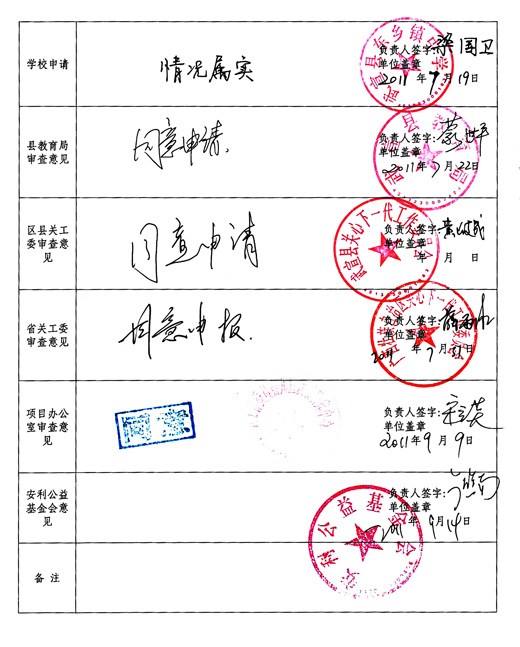 学校申请
情况属实
负责人签字: 梁国卫
单位盖章
2011 年 7 月 19 日
武宣县东乡镇中学
县教育局
审查意见
同意申请.
负责人签字:
单位盖章
2011 年 7 月 22 日
区县关工
委审查意
见
同意申请
负责人签字:
单位盖章
年 月 日
武宣县关心下一代工作委员会
省关工委
审查意见
同意申报.
负责人签字:
单位盖章
年 7 月 日
项目办公
室审查意
见
同意
负责人签字:
单位盖章
2011 年 9 月 9 日
安利公益
基金会意
见
负责人签字:
单位盖章
2011 年 9 月 14 日
安利公益基金会
备 注